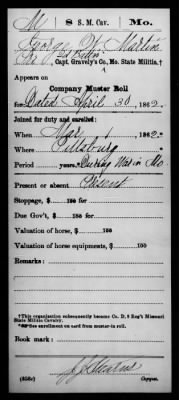 M | 8 S. M. Cav. | Mo.
George W. Martin
Pvt, 2d Batt'n
Capt. Gravely's Co., Mo. State Militia,†
Appears on
Company Muster Roll
for Dated April 30, 1862.
Joined for duty and enrolled:
When Mar 1, 1862.
Where Pittsburg
Period years. During War in Mo
Present or absent Present
Stoppage, $ 100 for
Due Gov't, $ 100 for
Valuation of horse, $ 100
Valuation of horse equipments, $ 100
Remarks:
†This organization subsequently became Co. D, 8 Reg't Missouri
State Militia Cavalry.
*See enrollment on card from muster-in roll.
Book mark:
(358c) Copyist.